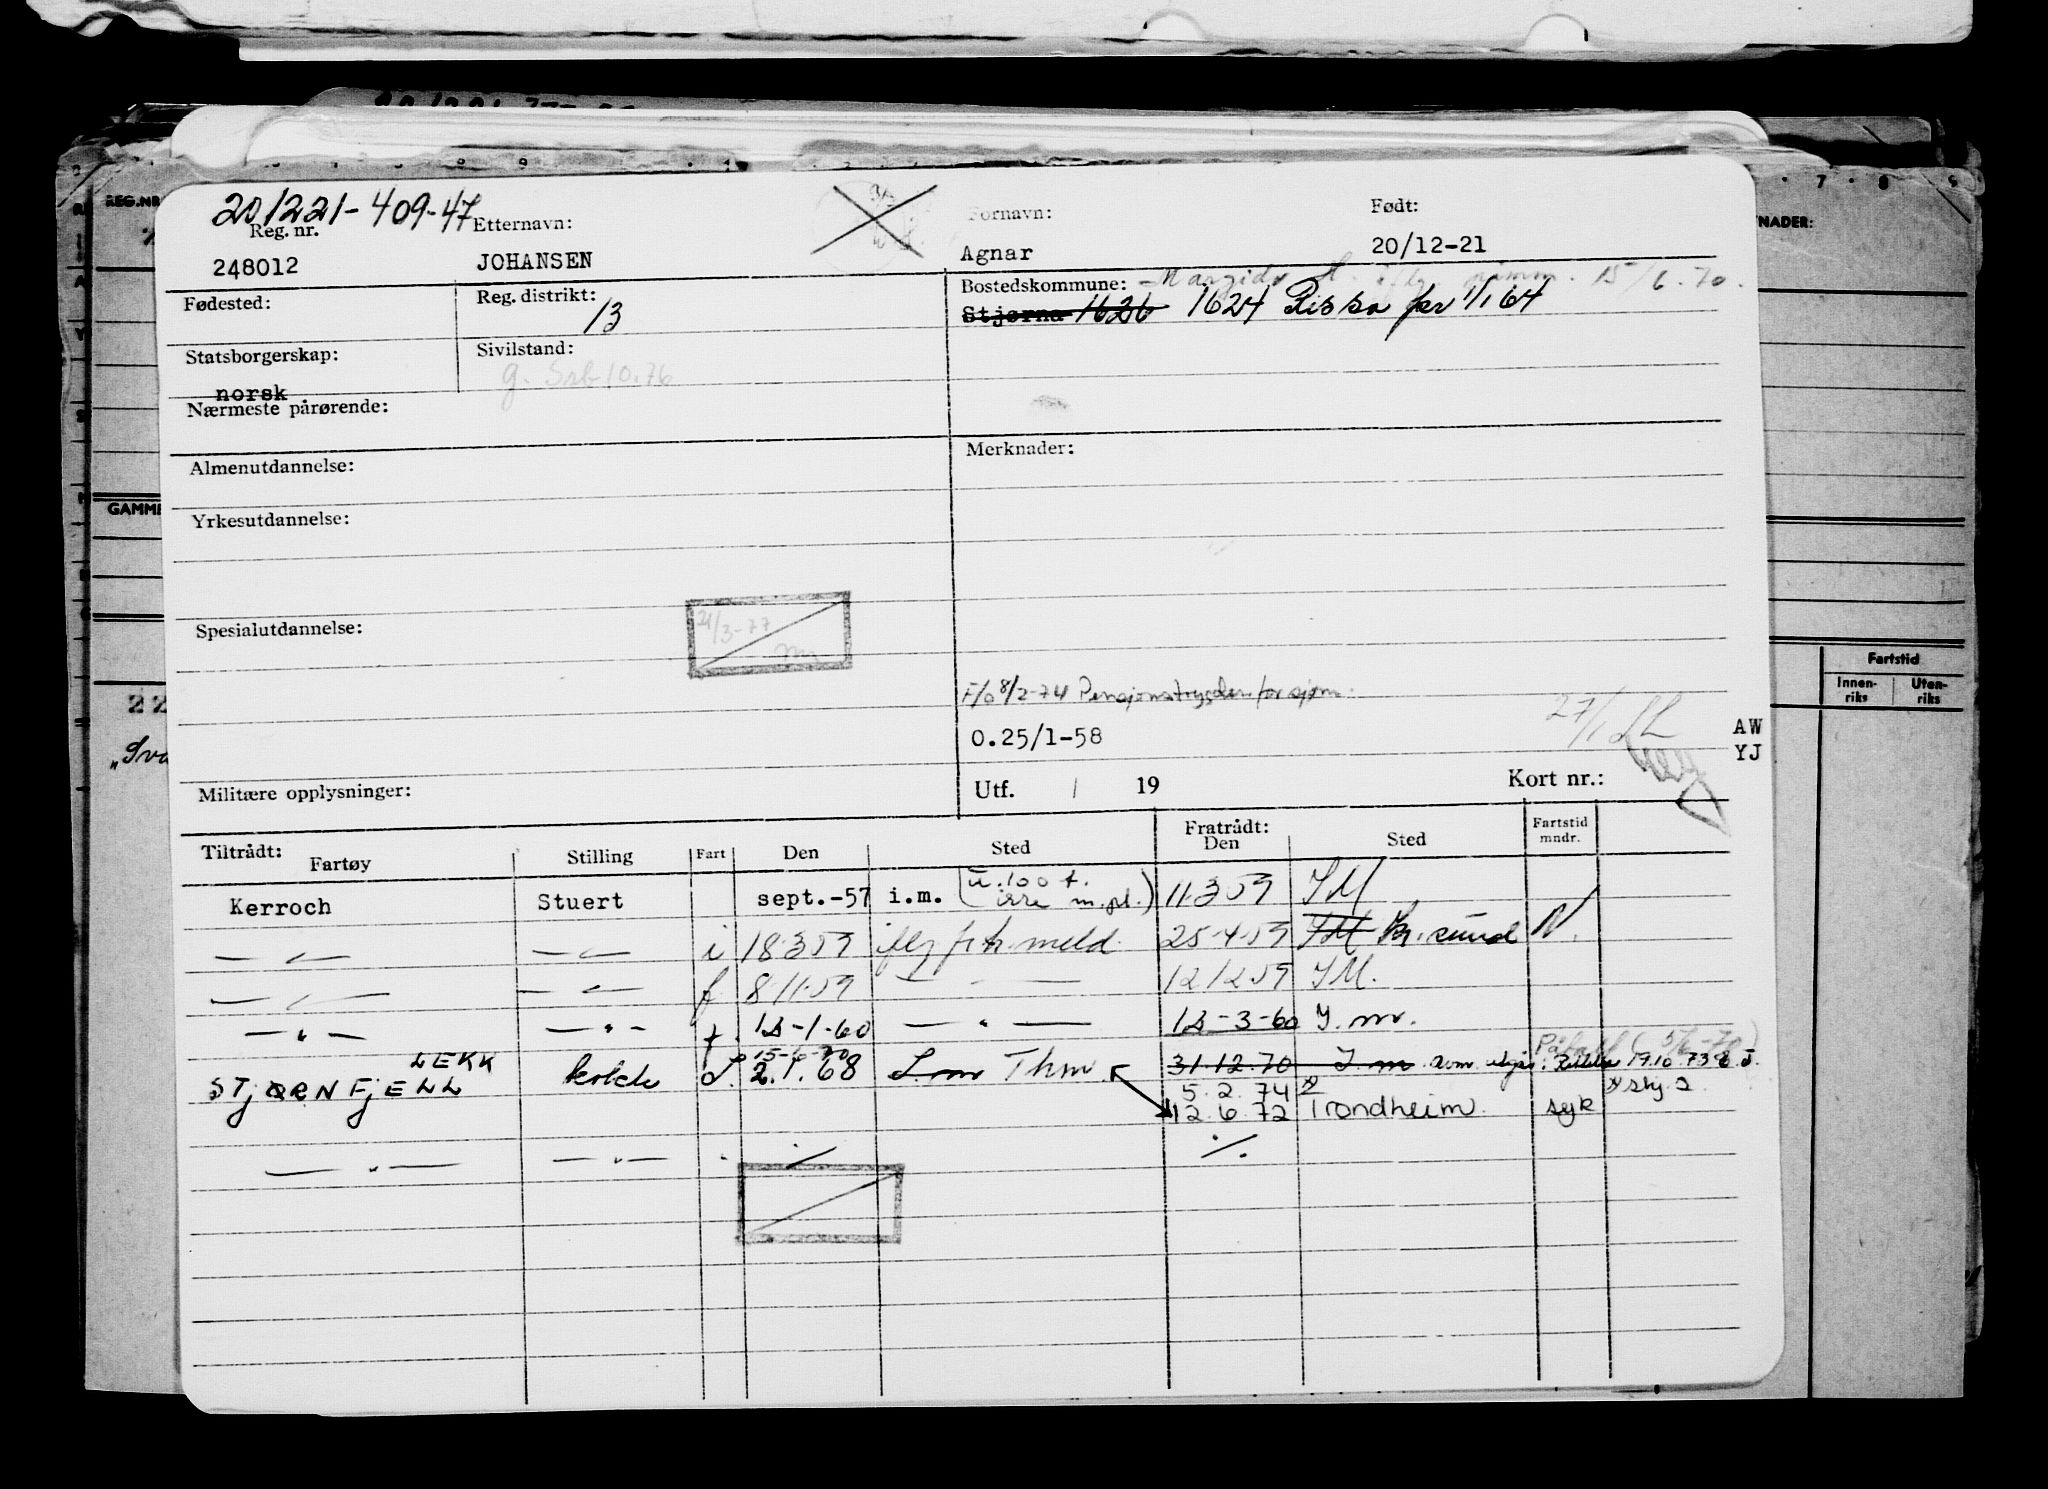 REG.NR
GAMME
NADER:
Fartstid
Innen-riks
Uten-riks
201221-409-47
Reg. nr.
248012
Etternavn:
JOHANSEN
Fornavn:
Agnar
Født:
20/12-21
Fødested:
Reg. distrikt:
13
Bostedskommune:
15/6.70.
Stjørna 1626 1624 Rissa før 1/1 64
Statsborgerskap:
norsk
Sivilstand:
g. 10.76
Nærmeste pårørende:
Almenutdannelse:
Merknader:
Yrkesutdannelse:
Spesialutdannelse:
21/3-77
F/o 8/2-74 Pensjonstrygden for sjøm.
0.25/1-58
27/1
AW
YJ
Militære opplysninger:
Utf. / 19
Kort nr.:
Tiltrådt:
Fartøy
Stilling
Fart
Den
Sted
Fratrådt:
Den
Sted
Fartstid
mndr.
Kerroch Stuert sept.-57 i.m. (u.100 t. ikke m.pl.) 11.3.59 IM
— " — — " — i 18.3.59 iflg fork. meld. 25.4.59 IM Kr.sund N.
— " — — " — f 8.11.59 — " — 12.12.59 IM.
— " — — " — f. 12-1-60 — " — 12-3-60 I.m.
LEKK 15-6-70
STJØRNFJELL kokk 2.1.68 I.m Thm 31.12.70 I.m som utgår: 1910 73
5.2.74
12.6.72 Trondheim syk
— " — — " — ./. ./.